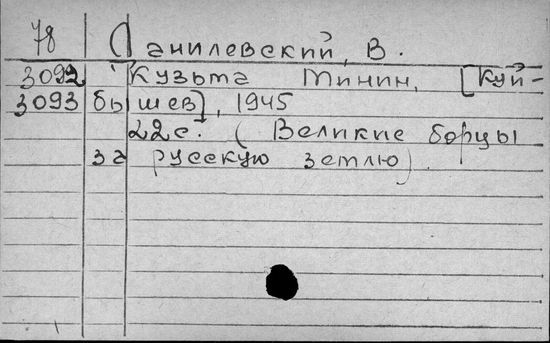 78 Данилевский, В.
3092 Кузьма Минин. [Куй-
3093 бышев], 1945
22с. (Великие борцы
за русскую землю).